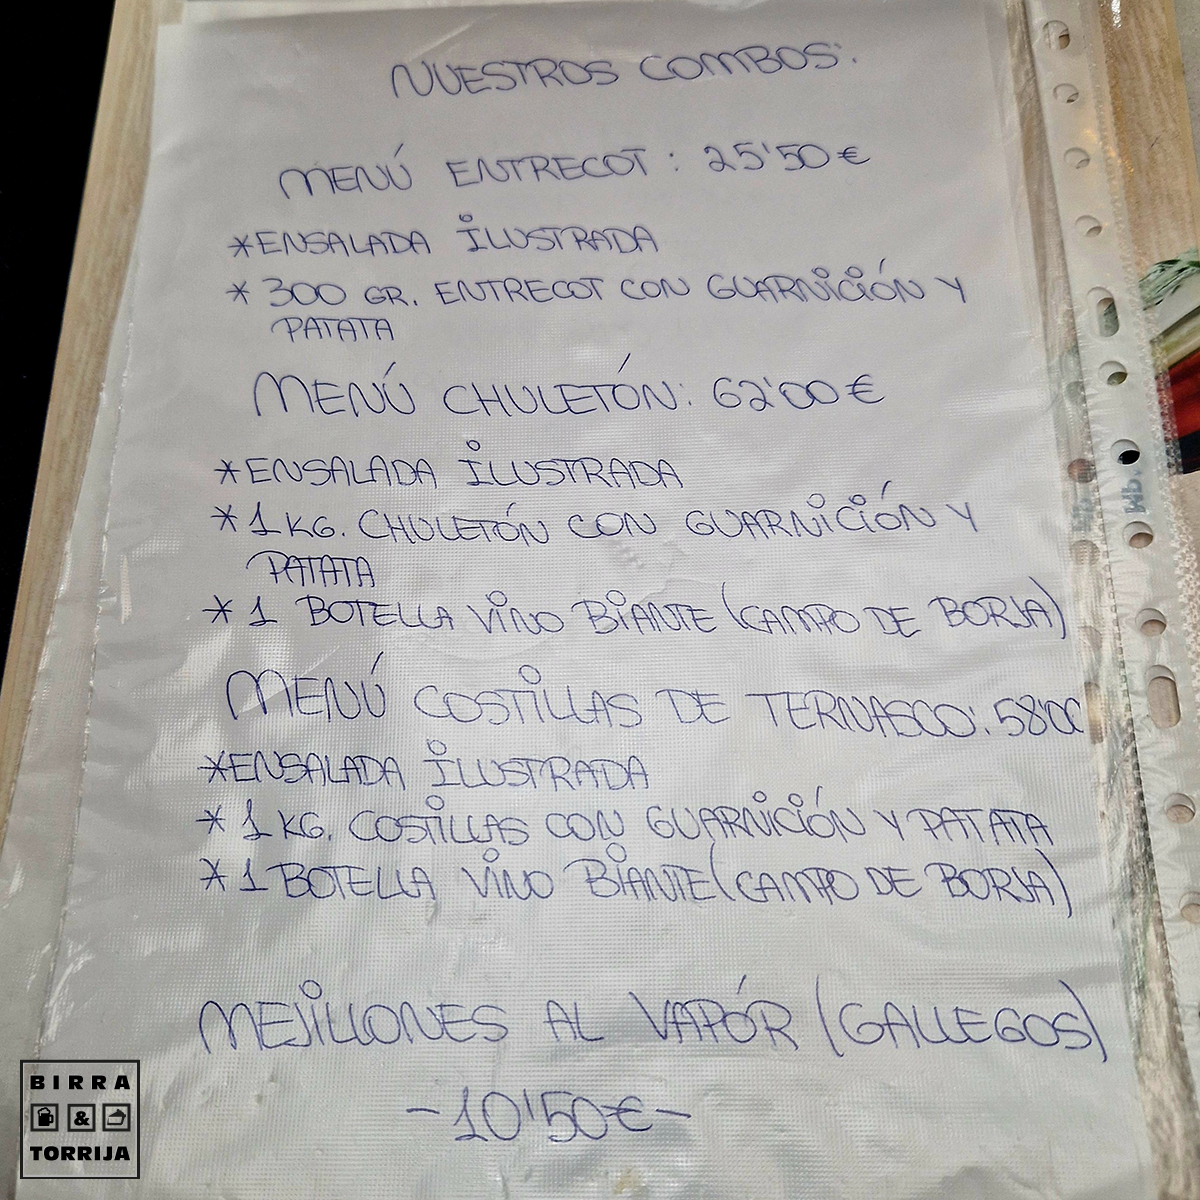 NUESTROS COMBOS:
MENÚ ENTRECOT: 25'50€
*ENSALADA ILUSTRADA
* 300 GR. ENTRECOT CON GUARNICIÓN Y
PATATA
MENÚ CHULETÓN: 62'00€
*ENSALADA ILUSTRADA
*1 KG. CHULETÓN CON GUARNICIÓN Y
PATATA
*1 BOTELLA VINO BIANTE (CAMPO DE BORJA)
MENÚ COSTILLAS DE TERNASCO: 58'00
*ENSALADA ILUSTRADA
*1 KG. COSTILLAS CON GUARNICIÓN Y PATATA
*1 BOTELLA VINO BIANTE (CAMPO DE BORJA)
MEJILLONES AL VAPÓR (GALLEGOS)
-10'50€-
BIRRA
&
TORRIJA